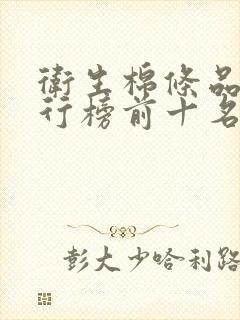 衛生棉條品
行榜前十名
彭大少哈利路